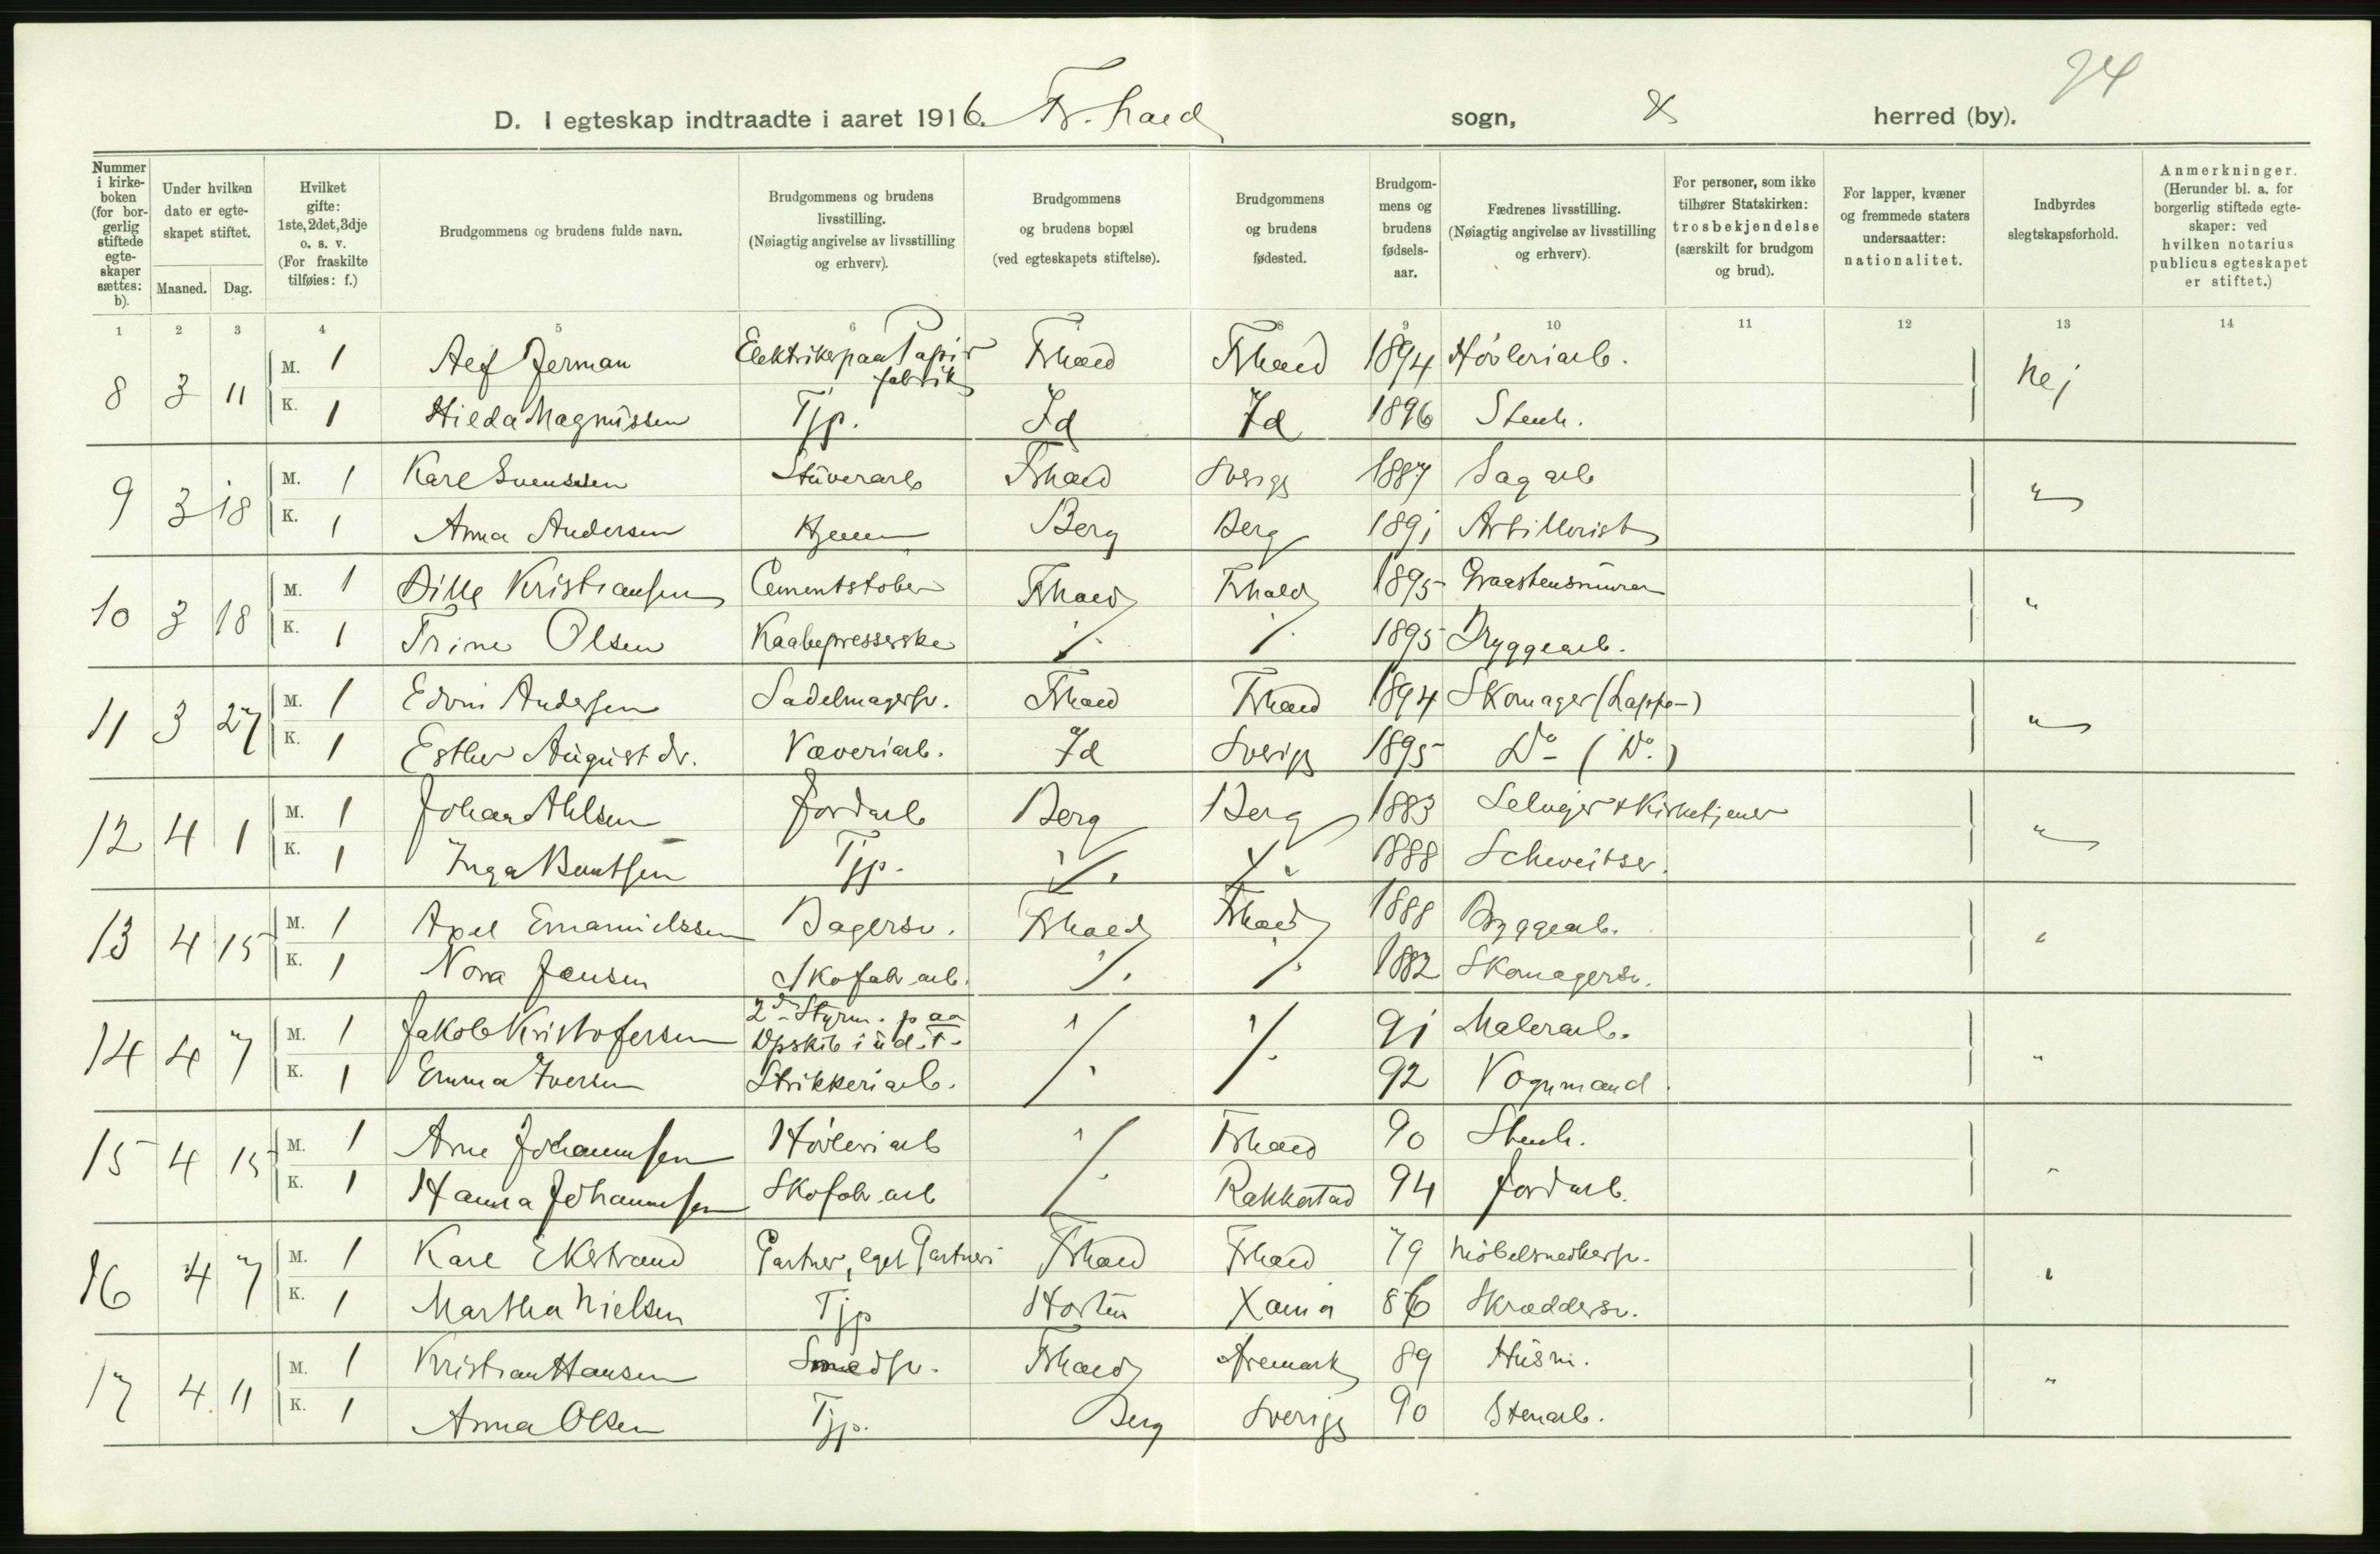 24
D. I egteskap indtraadte i aaret 1916. Fr.hald sogn, herred (by).
Nummer i kirkeboken (for borgerlig stiftede egteskaper sættes: b).
Under hvilken dato er egteskapet stiftet.
Maaned. Dag.
Hvilket gifte: 1ste, 2det, 3dje o. s. v. (For fraskilte tilføies: f.)
Brudgommens og brudens fulde navn.
Brudgommens og brudens livsstilling. (Nøiagtig angivelse av livsstilling og erhverv).
Brudgommens og brudens bopæl (ved egteskapets stiftelse).
Brudgommens og brudens fødested.
Brudgommens og brudens fødselsaar.
Fædrenes livsstilling. (Nøiagtig angivelse av livsstilling og erhverv).
For personer, som ikke tilhører Statskirken: trosbekjendelse (særskilt for brudgom og brud).
For lapper, kvæner og fremmede staters undersaatter: nationalitet.
Indbyrdes slegtskapsforhold.
Anmerkninger. (Herunder bl. a. for borgerlig stiftede egteskaper: ved hvilken notarius publicus egteskapet er stiftet.)
1 2 3 4 5 6 7 8 9 10 11 12 13 14
8 3 11 M. 1 Alf Jerman Elektriker paa Papirfabrik Frhald Frhald 1894 Høvleriarb. Nej
K. 1 Hilda Magnussen Tjp. Id Id 1896 Stenh.
9 3 18 M. 1 Karl Svenssen Stuverarb Frhald Sverige 1887 Sagarb "
K. 1 Anna Andersen Hjemme Berg Berg 1891 Artillerist
10 3 18 M. 1 Kristiansen Cementstøber Frhald Frhald 1895 Graastensmurer "
K. 1 Trine Olsen Kaabepresserske ⁒ ⁒ 1895 Bryggearb.
11 3 27 M. 1 Edvin Andersen Sadelmagersv. Frhald Frhald 1894 Skomager (Lappe-) "
K. 1 Esther August dr. Væveriarb. Id Sverige 1895 Do- (Do.)
12 4 1 M. 1 Johan Ahlsen Jordarb Berg Berg 1883 Seleier & Kirketjener "
K. 1 Inga Berntsen Tjp. ⁒ ⁒ 1888 Schweitser.
13 4 15 M. 1 Axel Emanuelssen Bagersv. Frhald Frhald 1888 Bryggearb. "
K. 1 Nora Jensen Skofabr.arb. ⁒ ⁒ 1882 Skomagersv.
14 4 7 M. 1 Jakob Kristofersen 2den Styrm. paa Dpskib i ud. F. ⁒ ⁒ 91 Malerarb. "
K. 1 Emma Iversen Strikkeriarb. 92 Vognmand.
15 4 15 M. 1 Arne Johannesen Høvleriarb ⁒ Frhald 90 Stenh. "
K. 1 Hanna Johannesen Skofabr.arb Rakkestad 94 Jordarb.
16 4 7 M. 1 Karl Ekstrand Gartner, eget Gartneri Frhald Frhald 79 Møbelsnedkersv. "
K. 1 Martha Nielsen Tjp Horten Xania 86 Skræddersv.
17 4 11 M. 1 Kristian Hansen Smedsv. Frhald Aremark 89 Husm. "
K. 1 Anna Olsen Tjp. Berg Sverige 90 Stenarb.